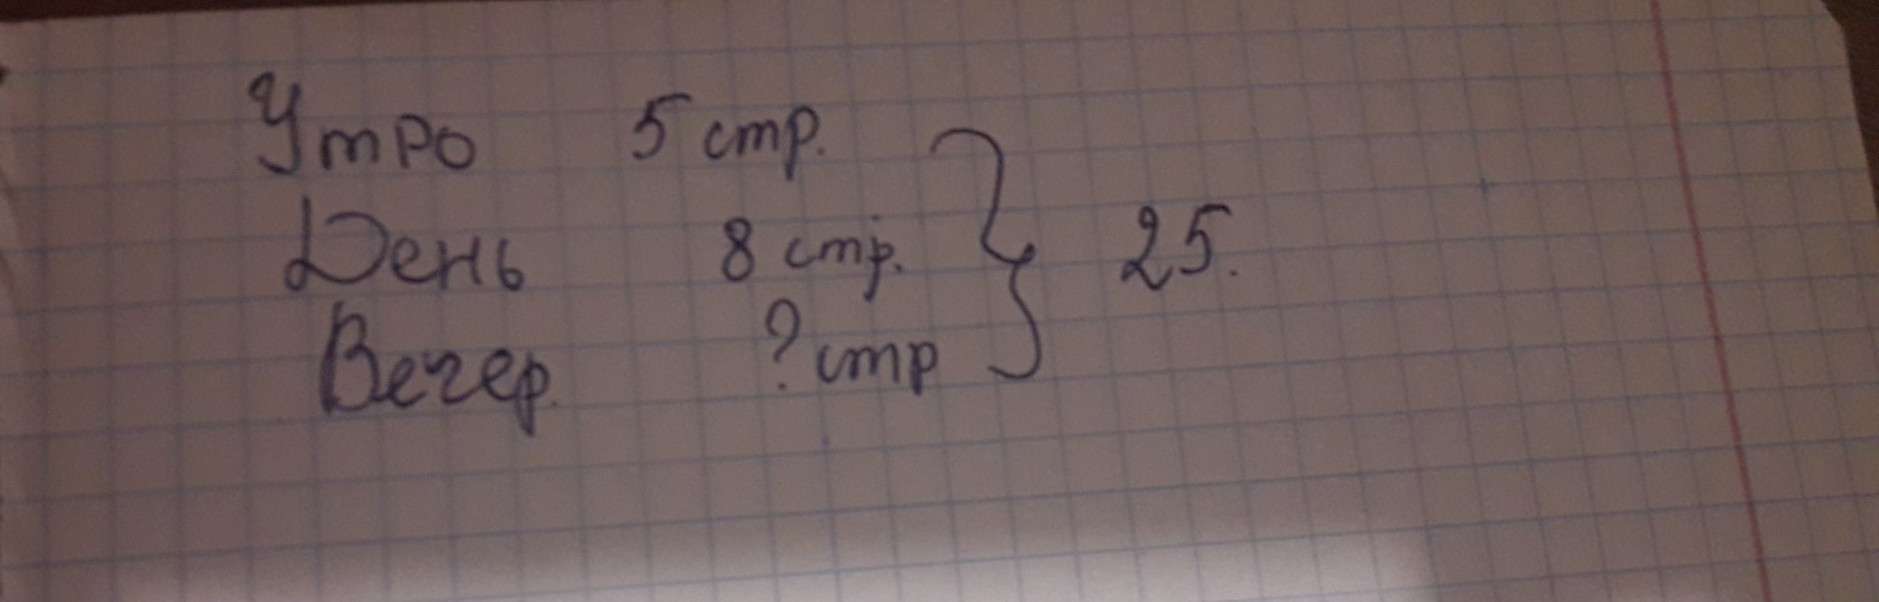 Утро 5 стр.
День 8 стр. 25.
Вечер. ? стр